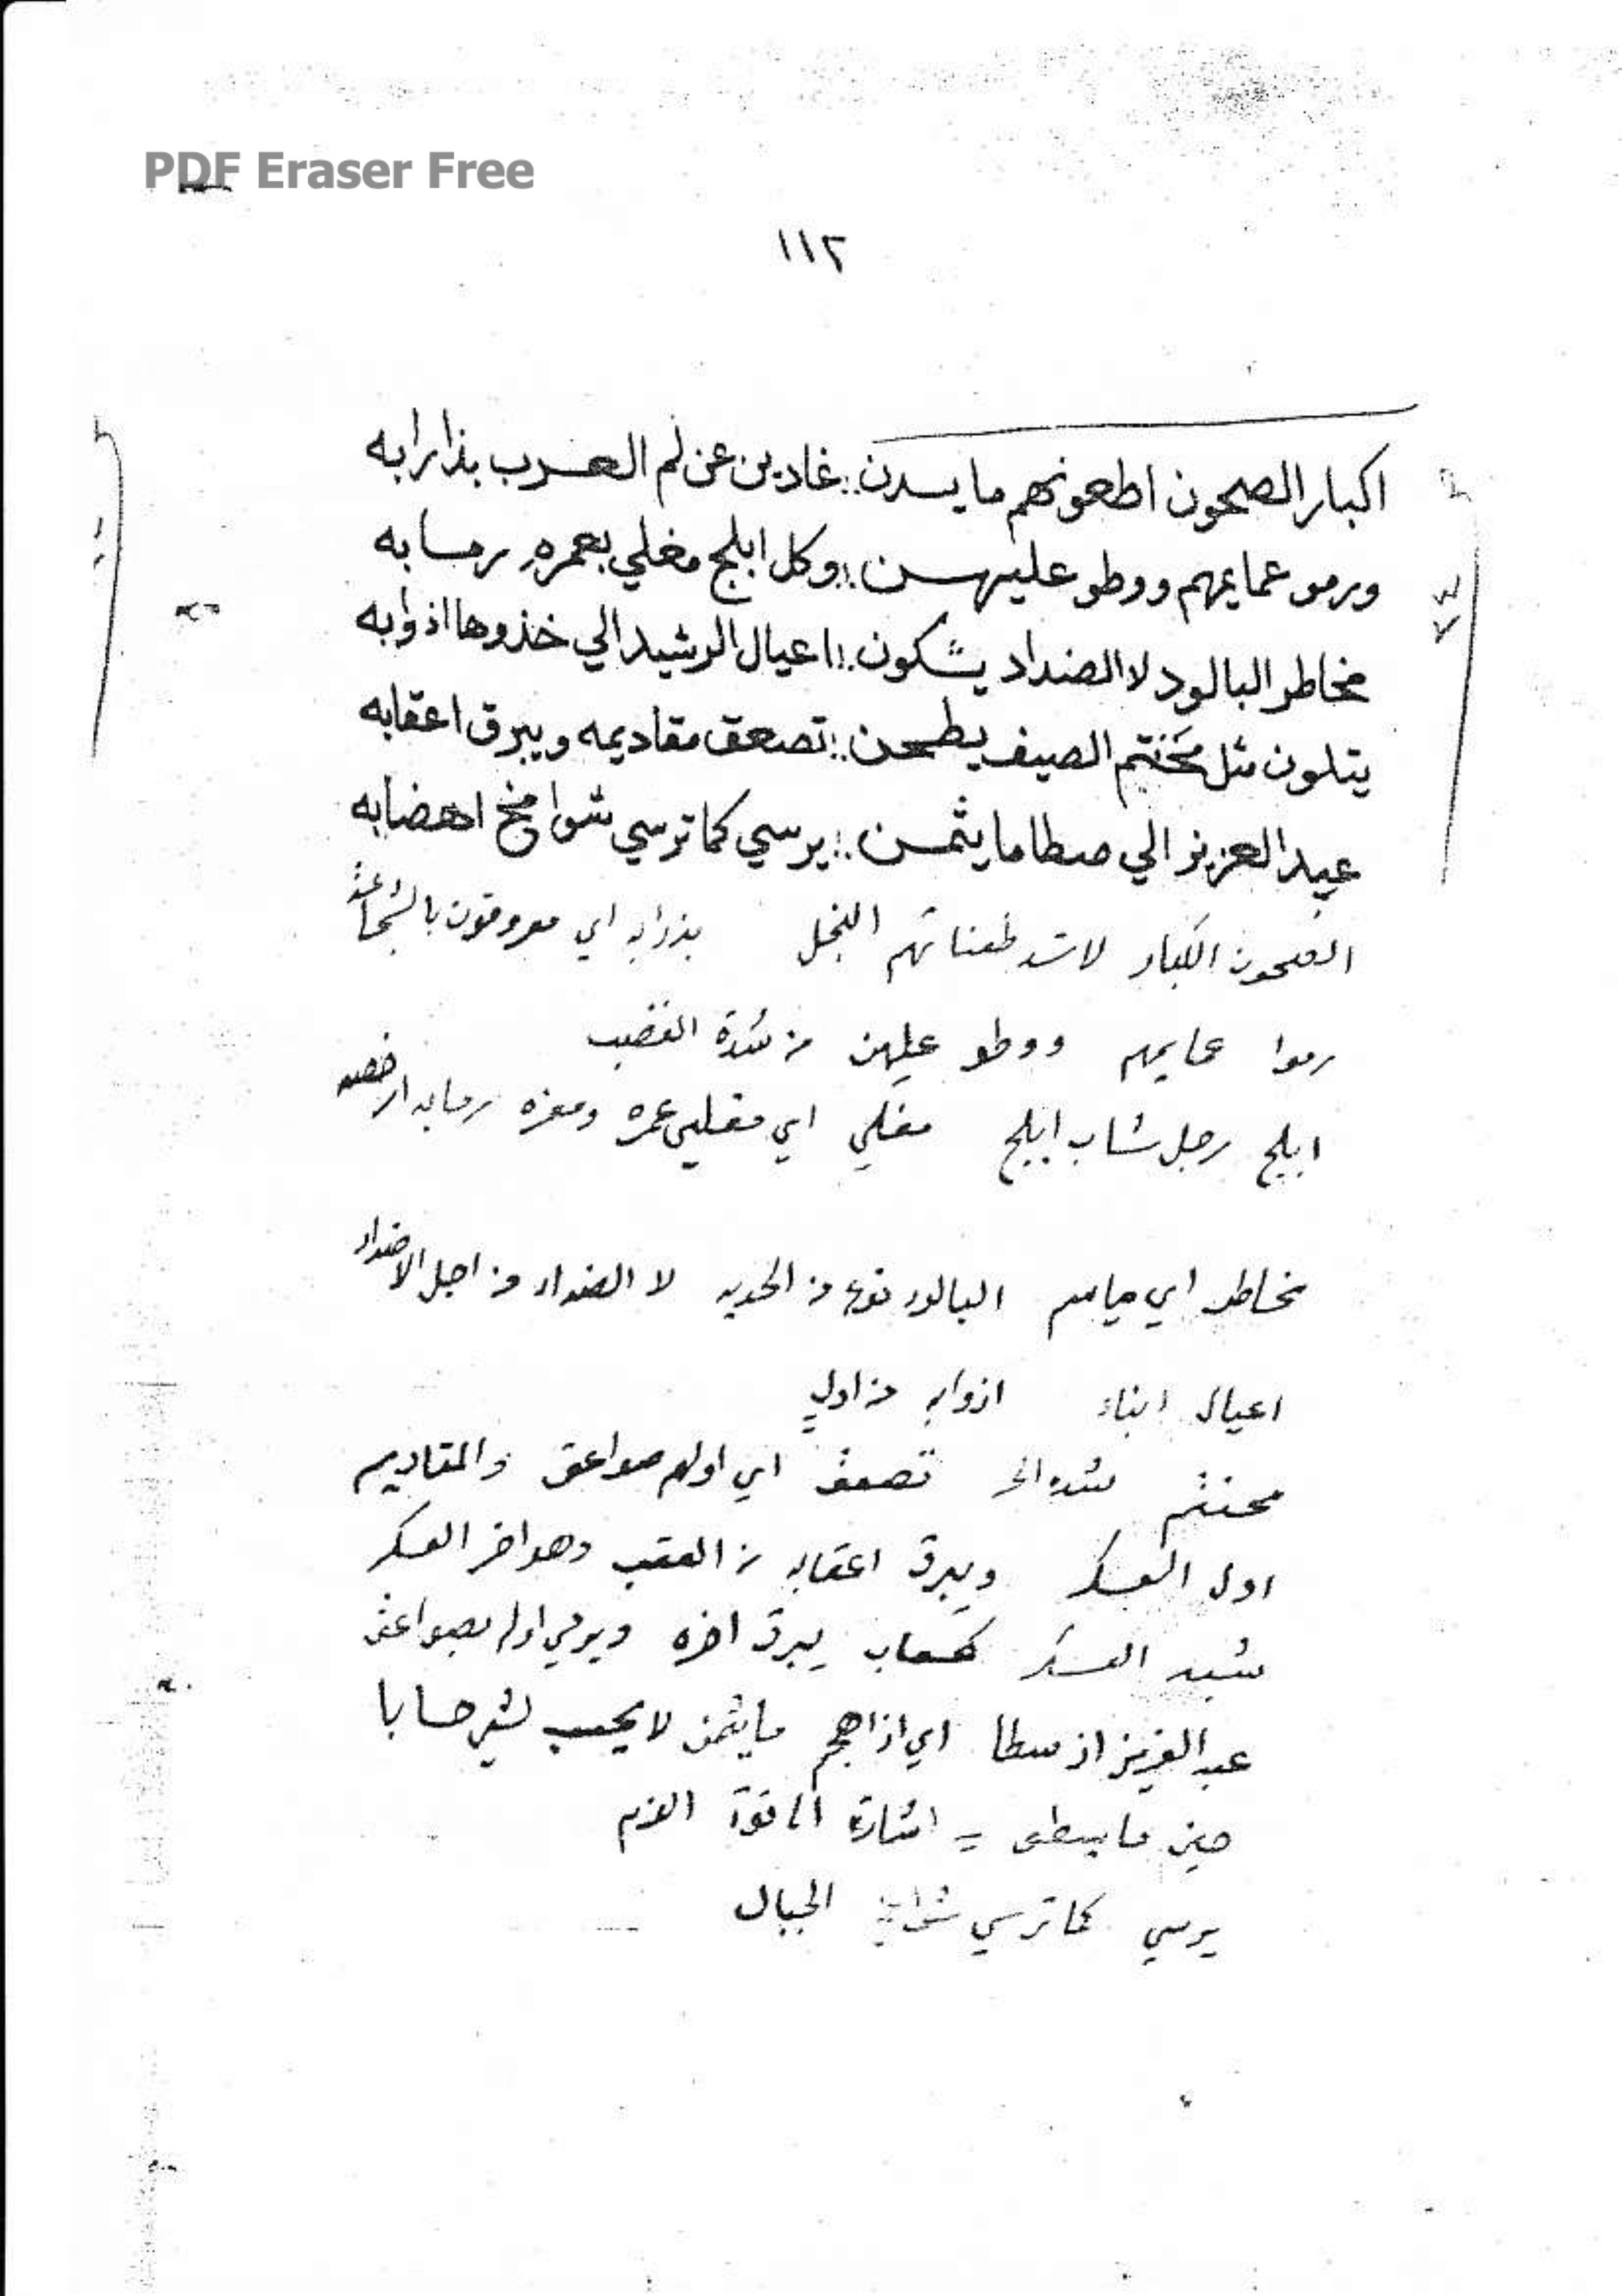 PDF Eraser Free
١١٢
اكبار الصحون اطعونهم ما يسدن :. غادين عن لم العرب بذرابه
ورمو عمايمهم ووطو عليهن :. وكل ابلج مغلي بعمره رمسابه
مخاطر البالود لا الضداد يشكون :. اعيال الرشيد الي خذوها اذوابه
يتلون مثل محنتم الصيف يطحن :. تصعق مقاديمه ويبرق اعقابه
عبد العزيز الي صطا ما يثمن :. يرسي كما ترسي شوامخ اهضابه
الصحون الكبار لاتسد طعناتهم النجل بذرابه اي معروفون بالشجاعة
رموا عمايمهم ووطو عليهن من شدة الغضب
ابلج رجل شاب ابلج مغلي اي مغليي عمره ومعزه رمابه ارخصه
مخاطر اي البالود نوع من الحديد لا الضداد من اجل الاضداد
اعيال ابناء اذوابه من اول
محنتم تصعق اي اوله صواعق والمقاديم
اول العسكر ويبرق اعقابه من العقب وهو اخر العسكر
شبه العسكر كسحاب يبرق اخره ويرمي اوله بصواعق
عبد العزيز اذ سطا اي اذا هجم ما يثمن لا يحسب لشي حسابا
حين ما يسطو = اشارة الى قوة العزم
يرسي كما ترسي شوامخ الجبال